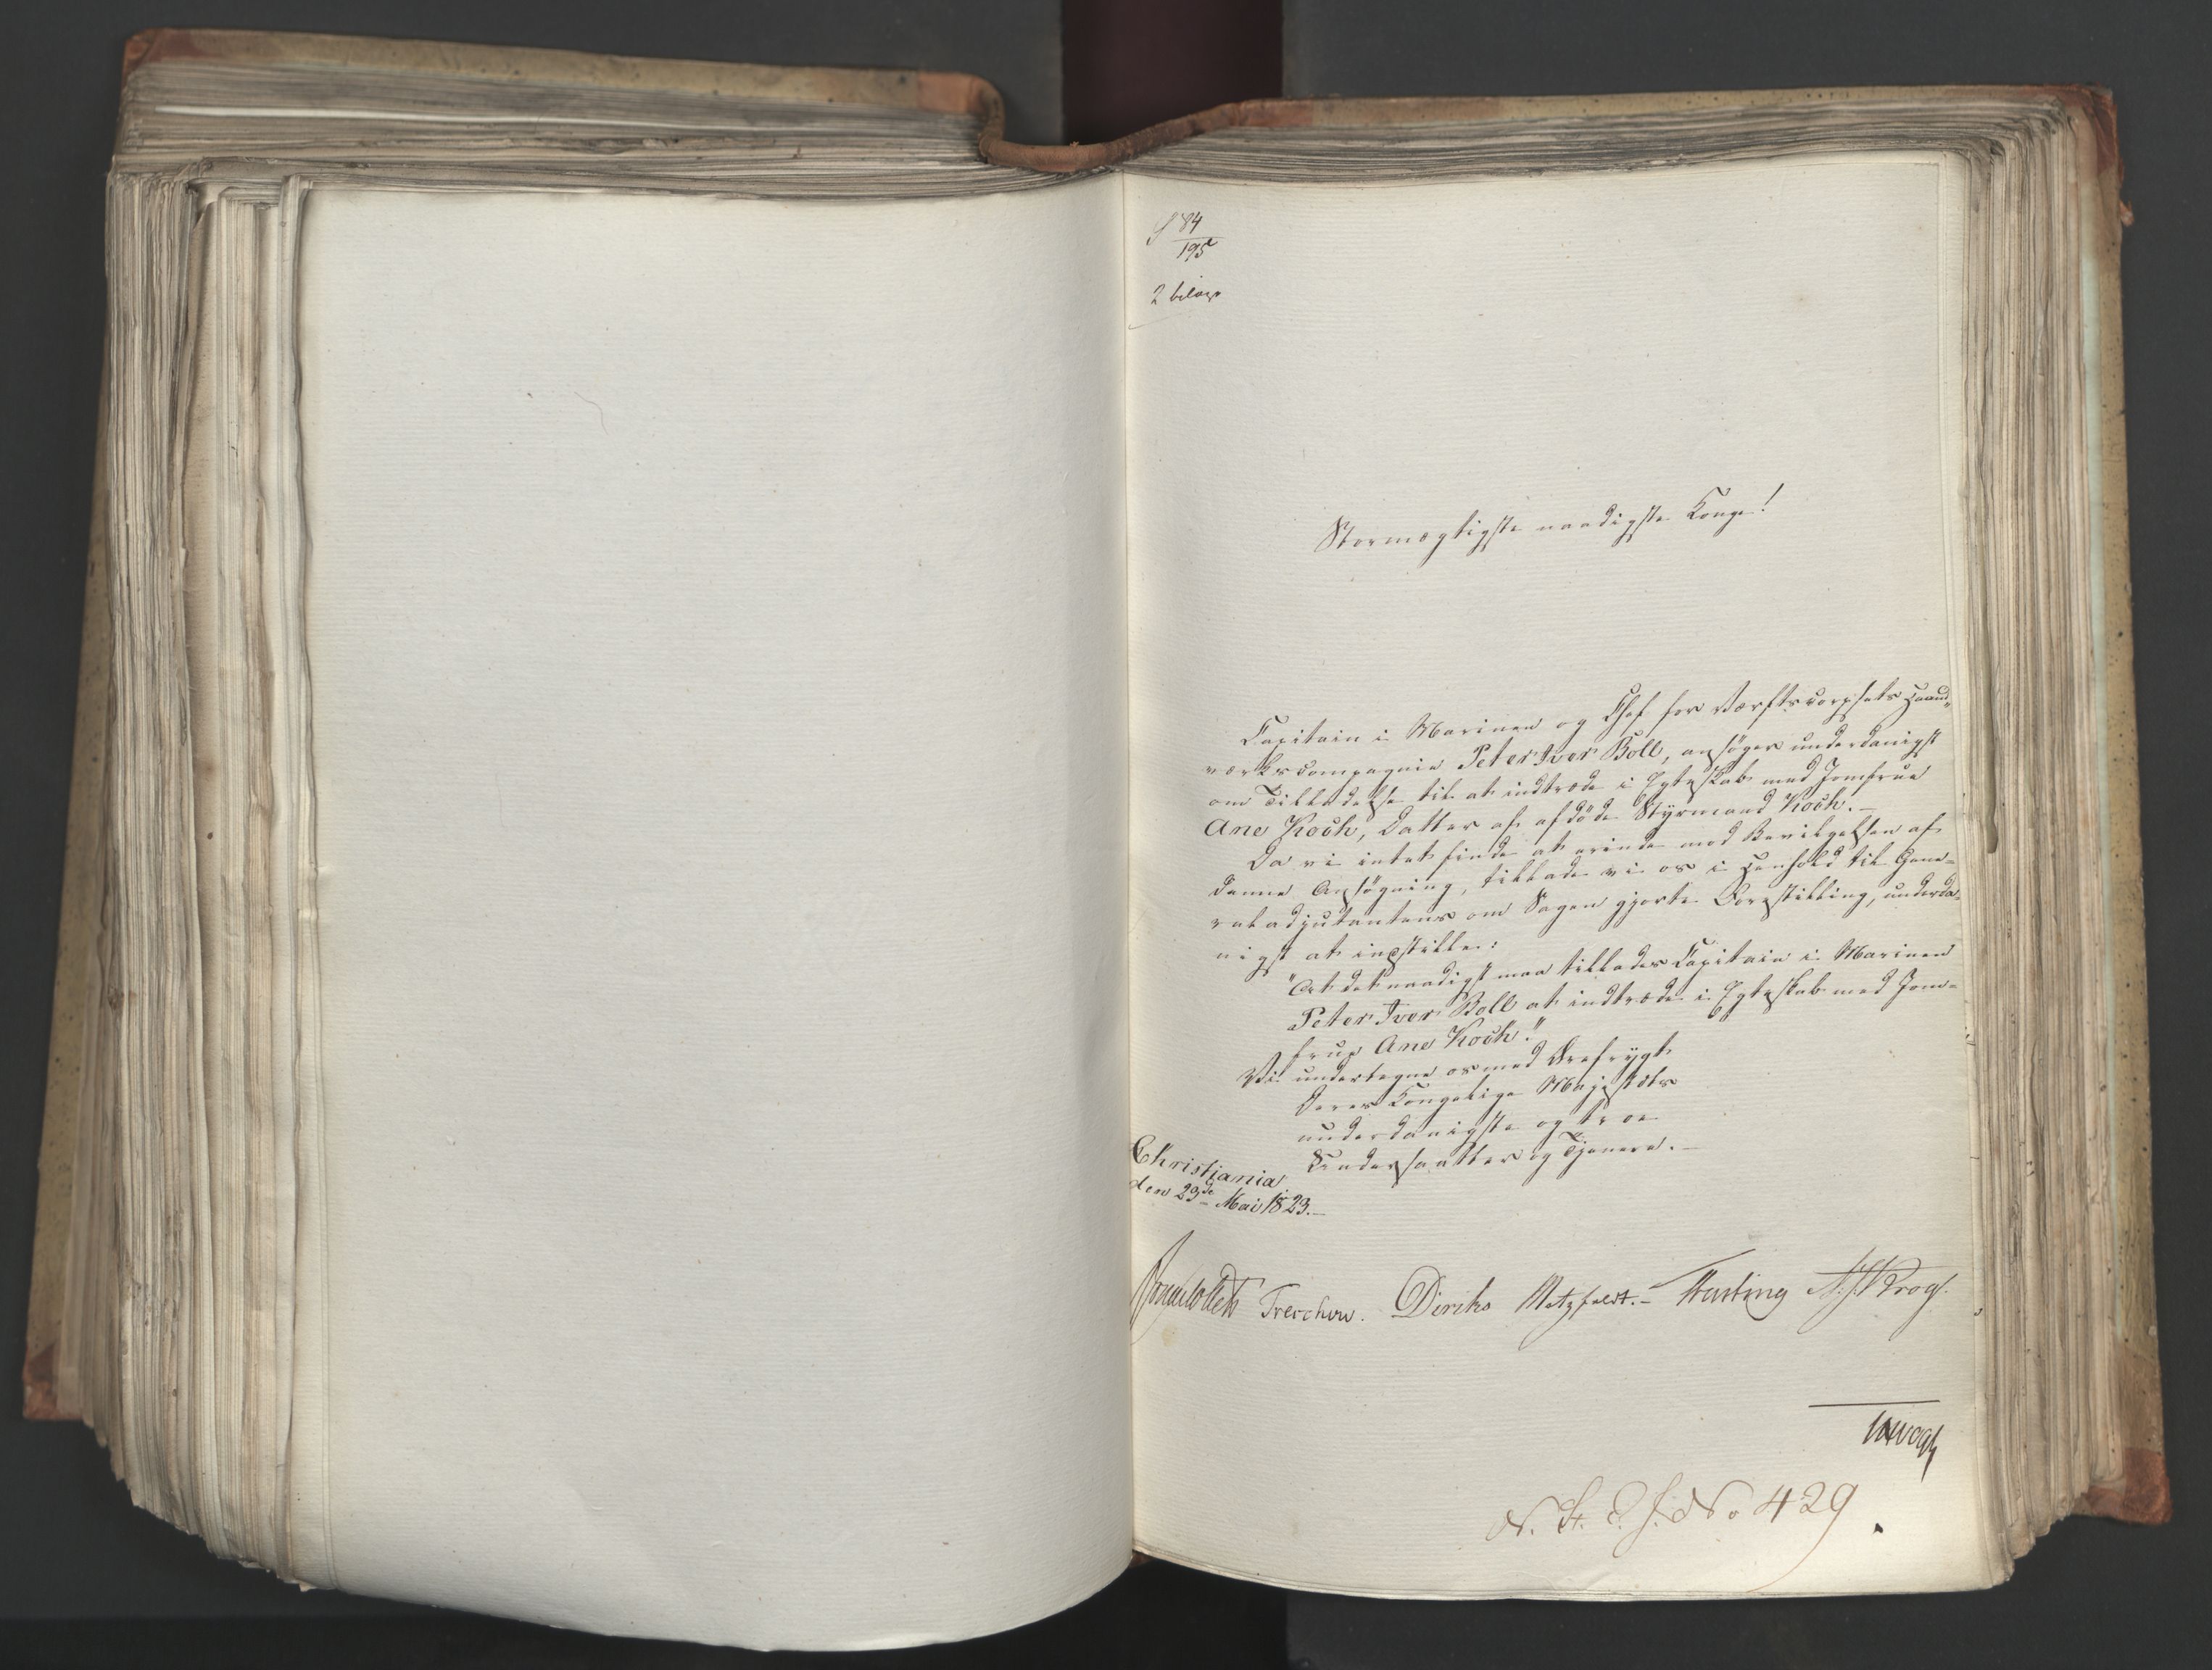 84
195
2 bilage
Stormægtigste naadigste Konge!
Capitain i Marinen og Chef for Værftscorpsets Haand„
værkscompagnie Peter Iver Boll, ansøger underdanigst
om Tilladelse til at indtræde i Egteskab med Jomfrue
Ane Koch, Datter af afdøde Styrmand Koch. –
Da vi intet finde at erindre mod Bevilgelsen af
denne Ansøgning, tillade vi os i Henhold til Gene=
raladjutantens om Sagen gjorte Forestilling, underda=
nigst at indstille:
"At det naadigst maa tillades Capitain i Marinen
Peter Iver Boll at indtræde i Egteskab med Jom=
frue Ane Koch."
Vi undertegne os med Ærefrygt
Deres Kongelige Majestæts
underdanigste og troe
Undersaatter og Tjenere. –
Christiania
den 23de Mai 1823. –
Treschow. Diriks Motzfeldt. – Fasting Krog.
N. St. S. J. No 429.